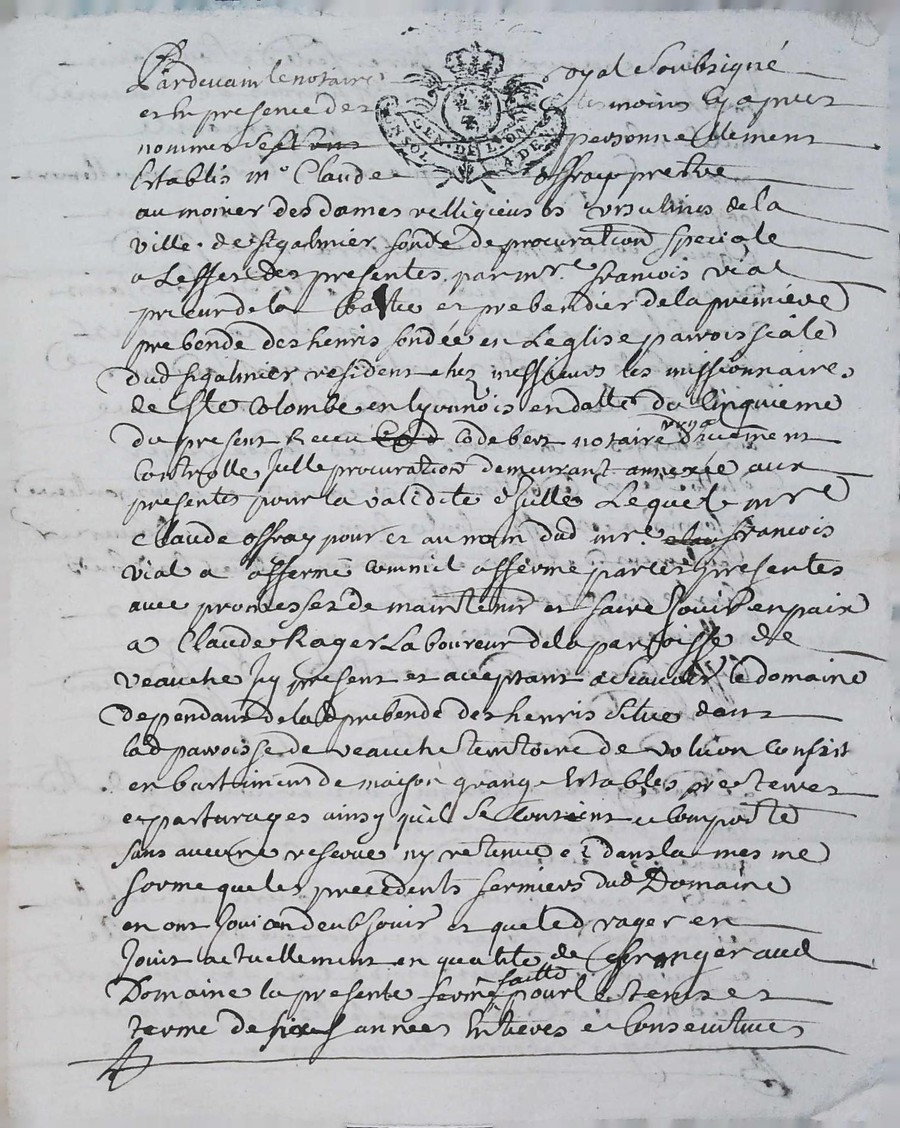 Pardevant le notaire royal soubsigné
et en presence des tesmoins cy apres
nommes personnellement
GEN. DE LYON
UN SOL
4 DEN
Establis mr Claude offray prestre
aumonier des dames relligieuses ursulines de la
ville de st galmier fondé de procuration speciale
a Leffet des presentes par mre francois vial
prieur de la et prebendier de la premiere
prebende des henris fondée en Leglise parroissiale
dud st galmier resident chez messieurs les missionnaires
de ste Colombe en lyonnois en datte du cinquieme
du present Receu Codebert notaire royal duement
Controllé Jcelle procuration demeurant annexée aux
presentes pour la validité d'Jcelles Lequel mre
Claude offray pour et au nom dud mre francois
vial a affermé comme il afferme par ces presentes
avec promesses de maintenir et faire Jouir en paix
a Claude Rager Laboureur de la parroisse de
veauche Jcy present et acceptant a Scavoir le domaine
dependant de lad prebende des henris Situé dans
lad parroisse de veauche territoire de volvon consist
en bastiments de maison grange Estables pre terres
et pasturages ainsy quil Se Contient et Comporte
sans aucune reserve ny retenue et dans la mesme
forme que les precedents fermiers dud Domaine
en ont Joui ou deub Jouir et que led rager en
Jouit actuellement en qualité de Granger aud
Domaine la presente ferme faitte pour le temps et
terme de années Entieres et Consecutives